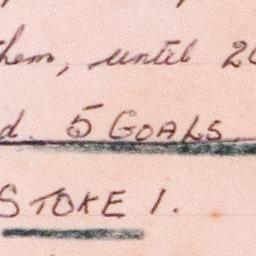 them, until 20
d. 5 GOALS
STOKE 1.